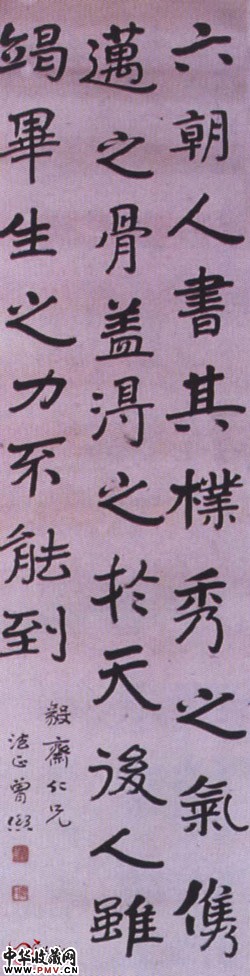 六朝人書其樸秀之氣儁
邁之骨蓋得之於天後人雖
竭畢生之力不能到
毅齋仁兄
法正曾熙
中华收藏网
www.PMV.cn